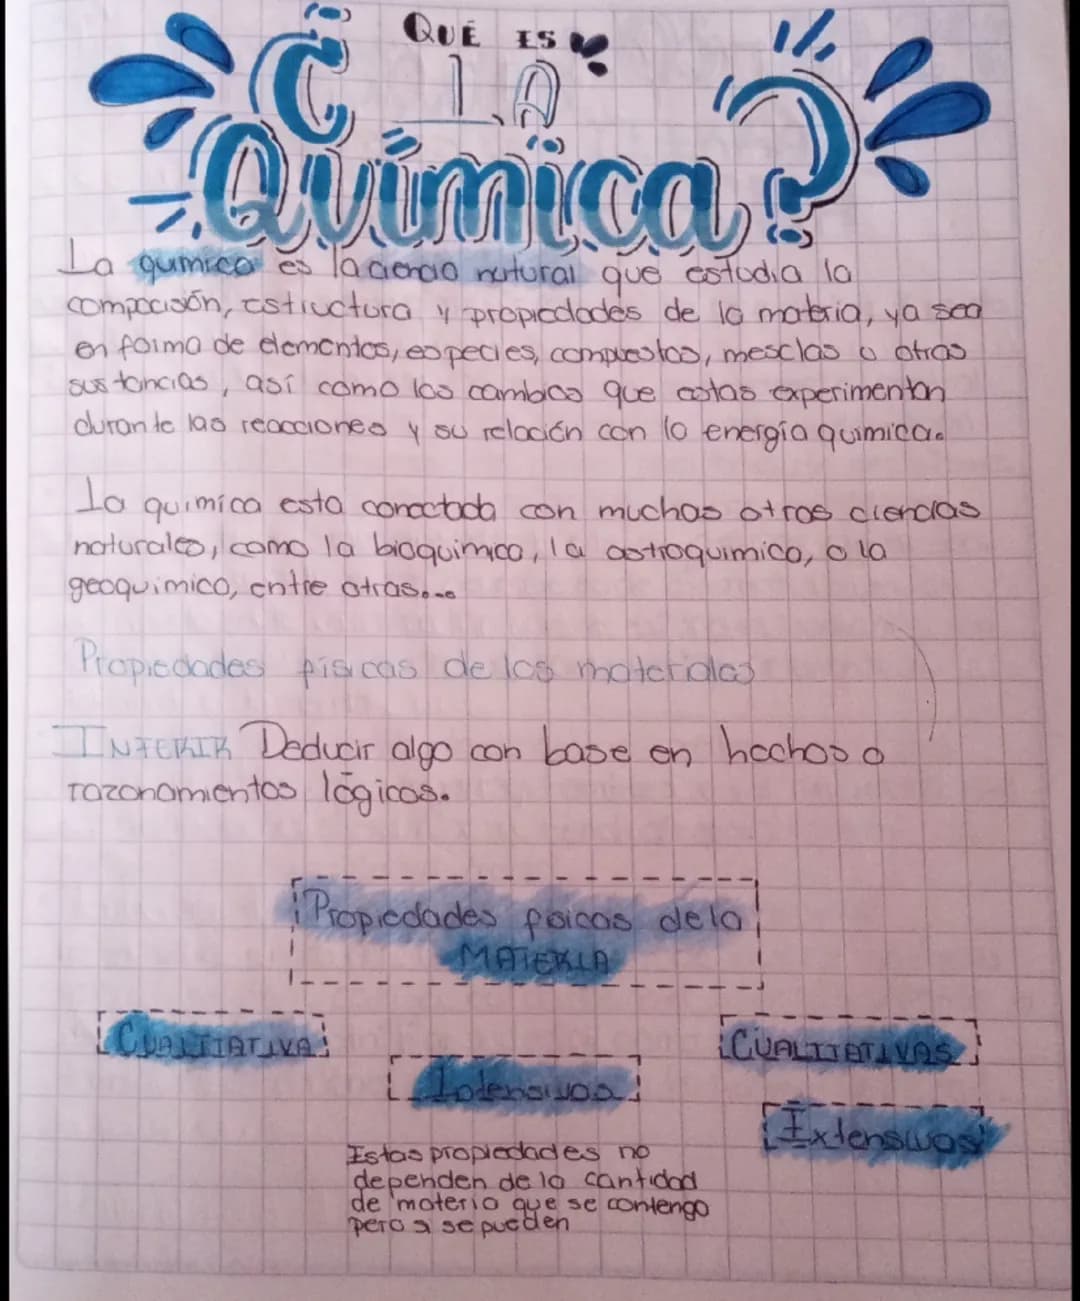 ¿QUÉ ES
LA
Química?
La quimica es la ciencia natural que estudia la
composisón, Estructura y propiedades de la materia, ya sea
en forma de elementos, especies, compuestos, mesclas u otras
sustancias, así como los cambios que estas experimentan
durante las reacciones y su relación con la energía quimica.
La quimica esta conectada con muchas otras ciencias
naturales, como la bioquimica, la astroquimica, o la
geoquimica, entre otras....
Propiedades fisicas de los materiales
INFERIR Deducir algo con base en hechos o
razonamientos lógicos.
Propiedades fisicas de la
MATERIA
CUALITATIVA
CUALITATIVAS
Intensivas
Extensivas
Estas propiedades no
dependen de la cantidad
de materia que se contenga
pero si se pueden